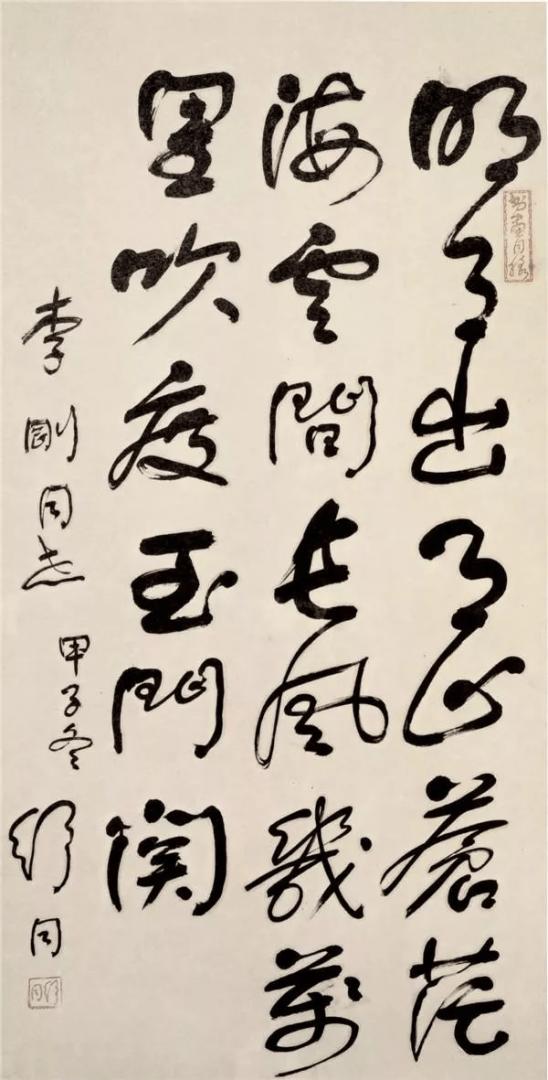 明月出天山蒼茫
海雲間長風幾萬
里吹度玉門関
李剛同志
甲子冬
舒同
舒同